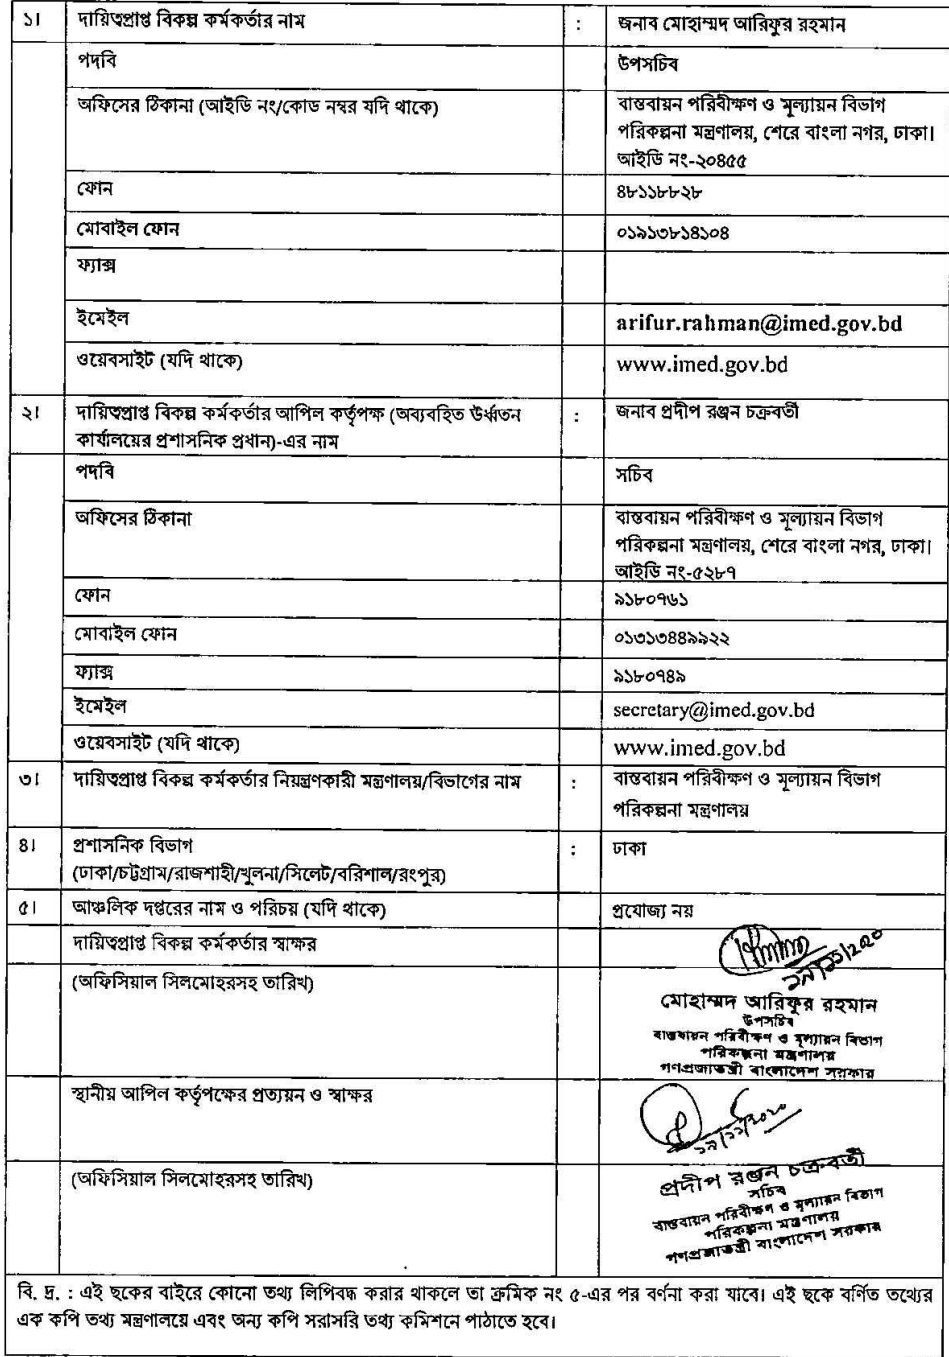 ১। দায়িত্বপ্রাপ্ত বিকল্প কর্মকর্তার নাম : জনাব মোহাম্মদ আরিফুর রহমান
পদবি উপসচিব
অফিসের ঠিকানা (আইডি নং/কোড নম্বর যদি থাকে) বাস্তবায়ন পরিবীক্ষণ ও মূল্যায়ন বিভাগ
পরিকল্পনা মন্ত্রণালয়, শেরে বাংলা নগর, ঢাকা।
আইডি নং-২০৪৫৫
ফোন ৪৮১১৮৮২৮
মোবাইল ফোন ০১৯১৩৮১৪১০৪
ফ্যাক্স
ইমেইল arifur.rahman@imed.gov.bd
ওয়েবসাইট (যদি থাকে) www.imed.gov.bd
২। দায়িত্বপ্রাপ্ত বিকল্প কর্মকর্তার আপিল কর্তৃপক্ষ (অব্যবহিত উর্ধ্বতন : জনাব প্রদীপ রঞ্জন চক্রবর্তী
কার্যালয়ের প্রশাসনিক প্রধান)-এর নাম
পদবি সচিব
অফিসের ঠিকানা বাস্তবায়ন পরিবীক্ষণ ও মূল্যায়ন বিভাগ
পরিকল্পনা মন্ত্রণালয়, শেরে বাংলা নগর, ঢাকা।
আইডি নং-৫২৮৭
ফোন ৯১৮০৭৬১
মোবাইল ফোন ০১৩১৩৪৪৯৯২২
ফ্যাক্স ৯১৮০৭৪৯
ইমেইল secretary@imed.gov.bd
ওয়েবসাইট (যদি থাকে) www.imed.gov.bd
৩। দায়িত্বপ্রাপ্ত বিকল্প কর্মকর্তার নিয়ন্ত্রণকারী মন্ত্রণালয়/বিভাগের নাম : বাস্তবায়ন পরিবীক্ষণ ও মূল্যায়ন বিভাগ
পরিকল্পনা মন্ত্রণালয়
৪। প্রশাসনিক বিভাগ : ঢাকা
(ঢাকা/চট্টগ্রাম/রাজশাহী/খুলনা/সিলেট/বরিশাল/রংপুর)
৫। আঞ্চলিক দপ্তরের নাম ও পরিচয় (যদি থাকে) প্রযোজ্য নয়
দায়িত্বপ্রাপ্ত বিকল্প কর্মকর্তার স্বাক্ষর
(অফিসিয়াল সিলমোহরসহ তারিখ)
মোহাম্মদ আরিফুর রহমান
উপসচিব
বাস্তবায়ন পরিবীক্ষণ ও মূল্যায়ন বিভাগ
পরিকল্পনা মন্ত্রণালয়
গণপ্রজাতন্ত্রী বাংলাদেশ সরকার
স্থানীয় আপিল কর্তৃপক্ষের প্রত্যয়ন ও স্বাক্ষর
(অফিসিয়াল সিলমোহরসহ তারিখ)
প্রদীপ রঞ্জন চক্রবর্তী
সচিব
বাস্তবায়ন পরিবীক্ষণ ও মূল্যায়ন বিভাগ
পরিকল্পনা মন্ত্রণালয়
গণপ্রজাতন্ত্রী বাংলাদেশ সরকার
বি. দ্র. : এই ছকের বাইরে কোনো তথ্য লিপিবদ্ধ করার থাকলে তা ক্রমিক নং ৫-এর পর বর্ণনা করা যাবে। এই ছকে বর্ণিত তথ্যের
এক কপি তথ্য মন্ত্রণালয়ে এবং অন্য কপি সরাসরি তথ্য কমিশনে পাঠাতে হবে।